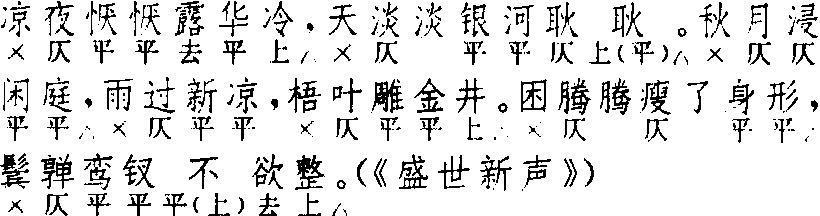 凉夜恹恹露华冷，天淡淡银河耿 耿 。秋月浸
× 仄 平 平 去 平 上△ × 仄 平 平 仄 上(平)△ × 仄 仄
闲庭，雨过新凉，梧叶雕金井。困腾腾瘦了身形，
平 平△ × 仄 平 平 × 仄 平 平 上△ × 仄 仄 平 平△
鬓亸鸾钗 不 欲整。(《盛世新声》)
× 仄 平 平 平(上) 去 上△